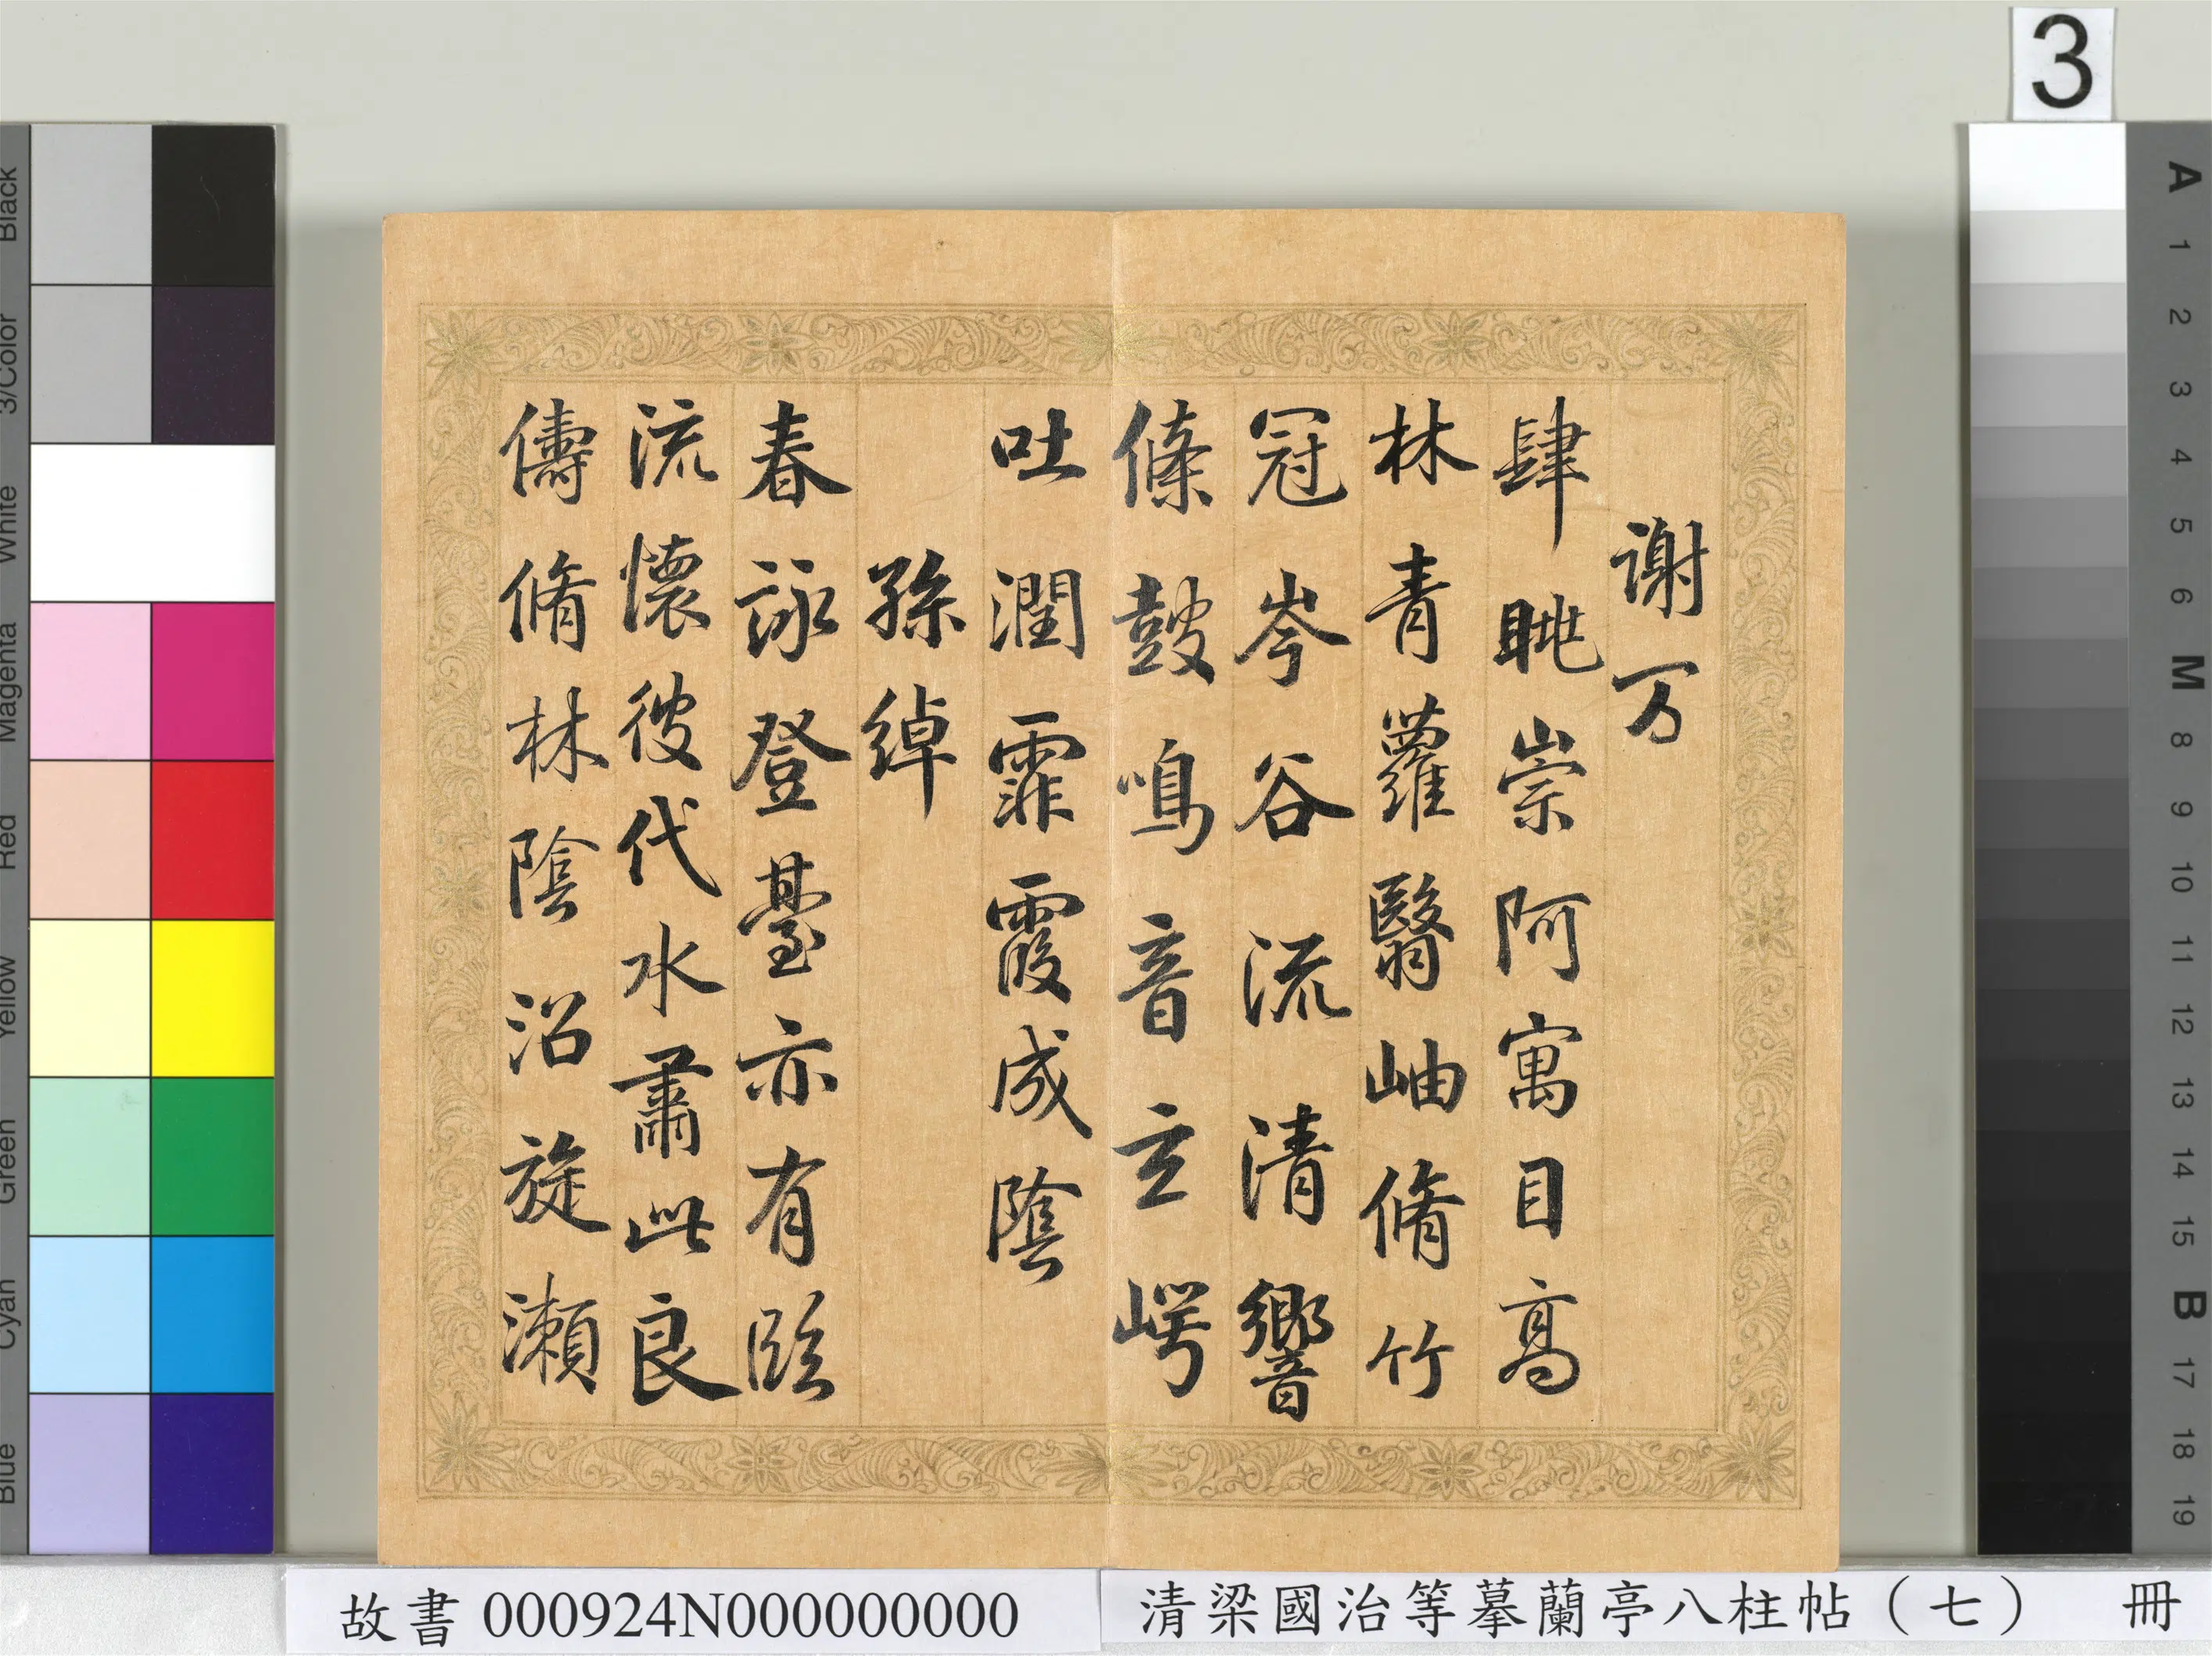 3
謝万
肆眺崇阿寓目高
林青蘿翳岫脩竹
冠岑谷流清響
條鼓鳴音玄崿
吐潤霏霧成陰
孫綽
春詠登臺亦有臨
流懷彼伐木肅此良
儔脩林陰沼旋瀨
故書 000924N000000000
清梁國治等摹蘭亭八柱帖（七） 冊
Black
3/Color
White
Magenta
Red
Yellow
Green
Cyan
Blue
A
1
2
3
4
5
6
M
8
9
10
11
12
13
14
15
B
17
18
19